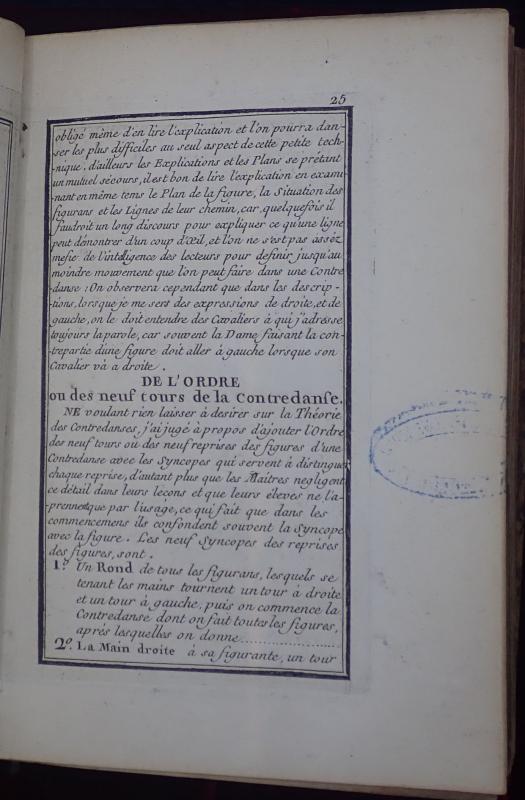 25
obligé même d'en lire l'explication et l'on pourra dan-
ser les plus difficiles au seul aspect de cette petite tech-
nique. d'ailleurs les Explications et les Plans se prêtant
un mutuel sécours, il est bon de lire l'explication en exami-
nant en même tems le Plan de la figure, la Situation des
figurans et les Lignes de leur chemin, car, quelquefois il
faudroit un long discours pour expliquer ce qu'une ligne
peut démontrer d'un coup d'œil, et l'on ne s'est pas assèz
mefie de l'intelligence des lecteurs pour definir jusqu'au
moindre mouvement que l'on peut faire dans une Contre
danse : On observera cependant que dans les descrip-
-tions, lorsque je me sers des expressions de droite, et de
gauche, on le doit entendre des Cavaliers à qui j'adrèsse
toujours la parole, car souvent la Dame faisant la con-
trepartie d'une figure doit aller à gauche lorsque son
Cavalier và a droite.
DE L'ORDRE
ou des neuf tours de la Contredanse.
NE voulant rien laisser à desirer sur la Théorie
des Contredanses, j'ai jugé à propos d'ajouter l'Ordre
des neuf tours ou des neuf reprises des figures d'une
Contredanse avec les Syncopes qui servent à distinguer
chaque reprise, d'autant plus que les Maitres negligent
ce détail dans leurs leçons et que leurs eleves ne l'a-
prennent que par l'usage, ce qui fait que dans les
commencemens ils confondent souvent la Syncope
avec la figure. Les neuf Syncopes des reprises
des figures, sont.
1.º Un Rond de tous les figurans, lesquels se
tenant les mains tournent un tour à droite
et un tour à gauche, puis on commence la
Contredanse dont on fait toutes les figures,
après lesquelles on donne....................
2º. La Main droite à sa figurante, un tour